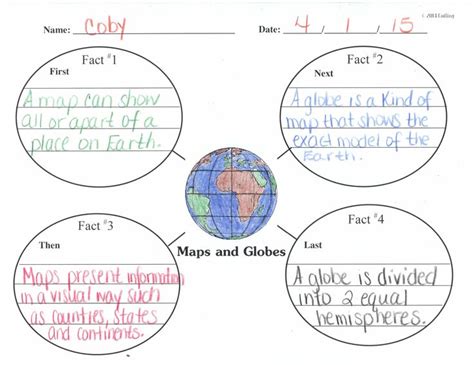 Name: Coby
Date: 4/1/15
Fact #1
First
A map can show
all or apart of a
place on Earth.
Fact #2
Next
A globe is a Kind of
map that shows the
exact model of the
Earth.
Maps and Globes
Fact #3
Then
Maps present information
in a visual way such
as counties, states
and continents.
Fact #4
Last
A globe is divided
into 2 equal
hemispheres.